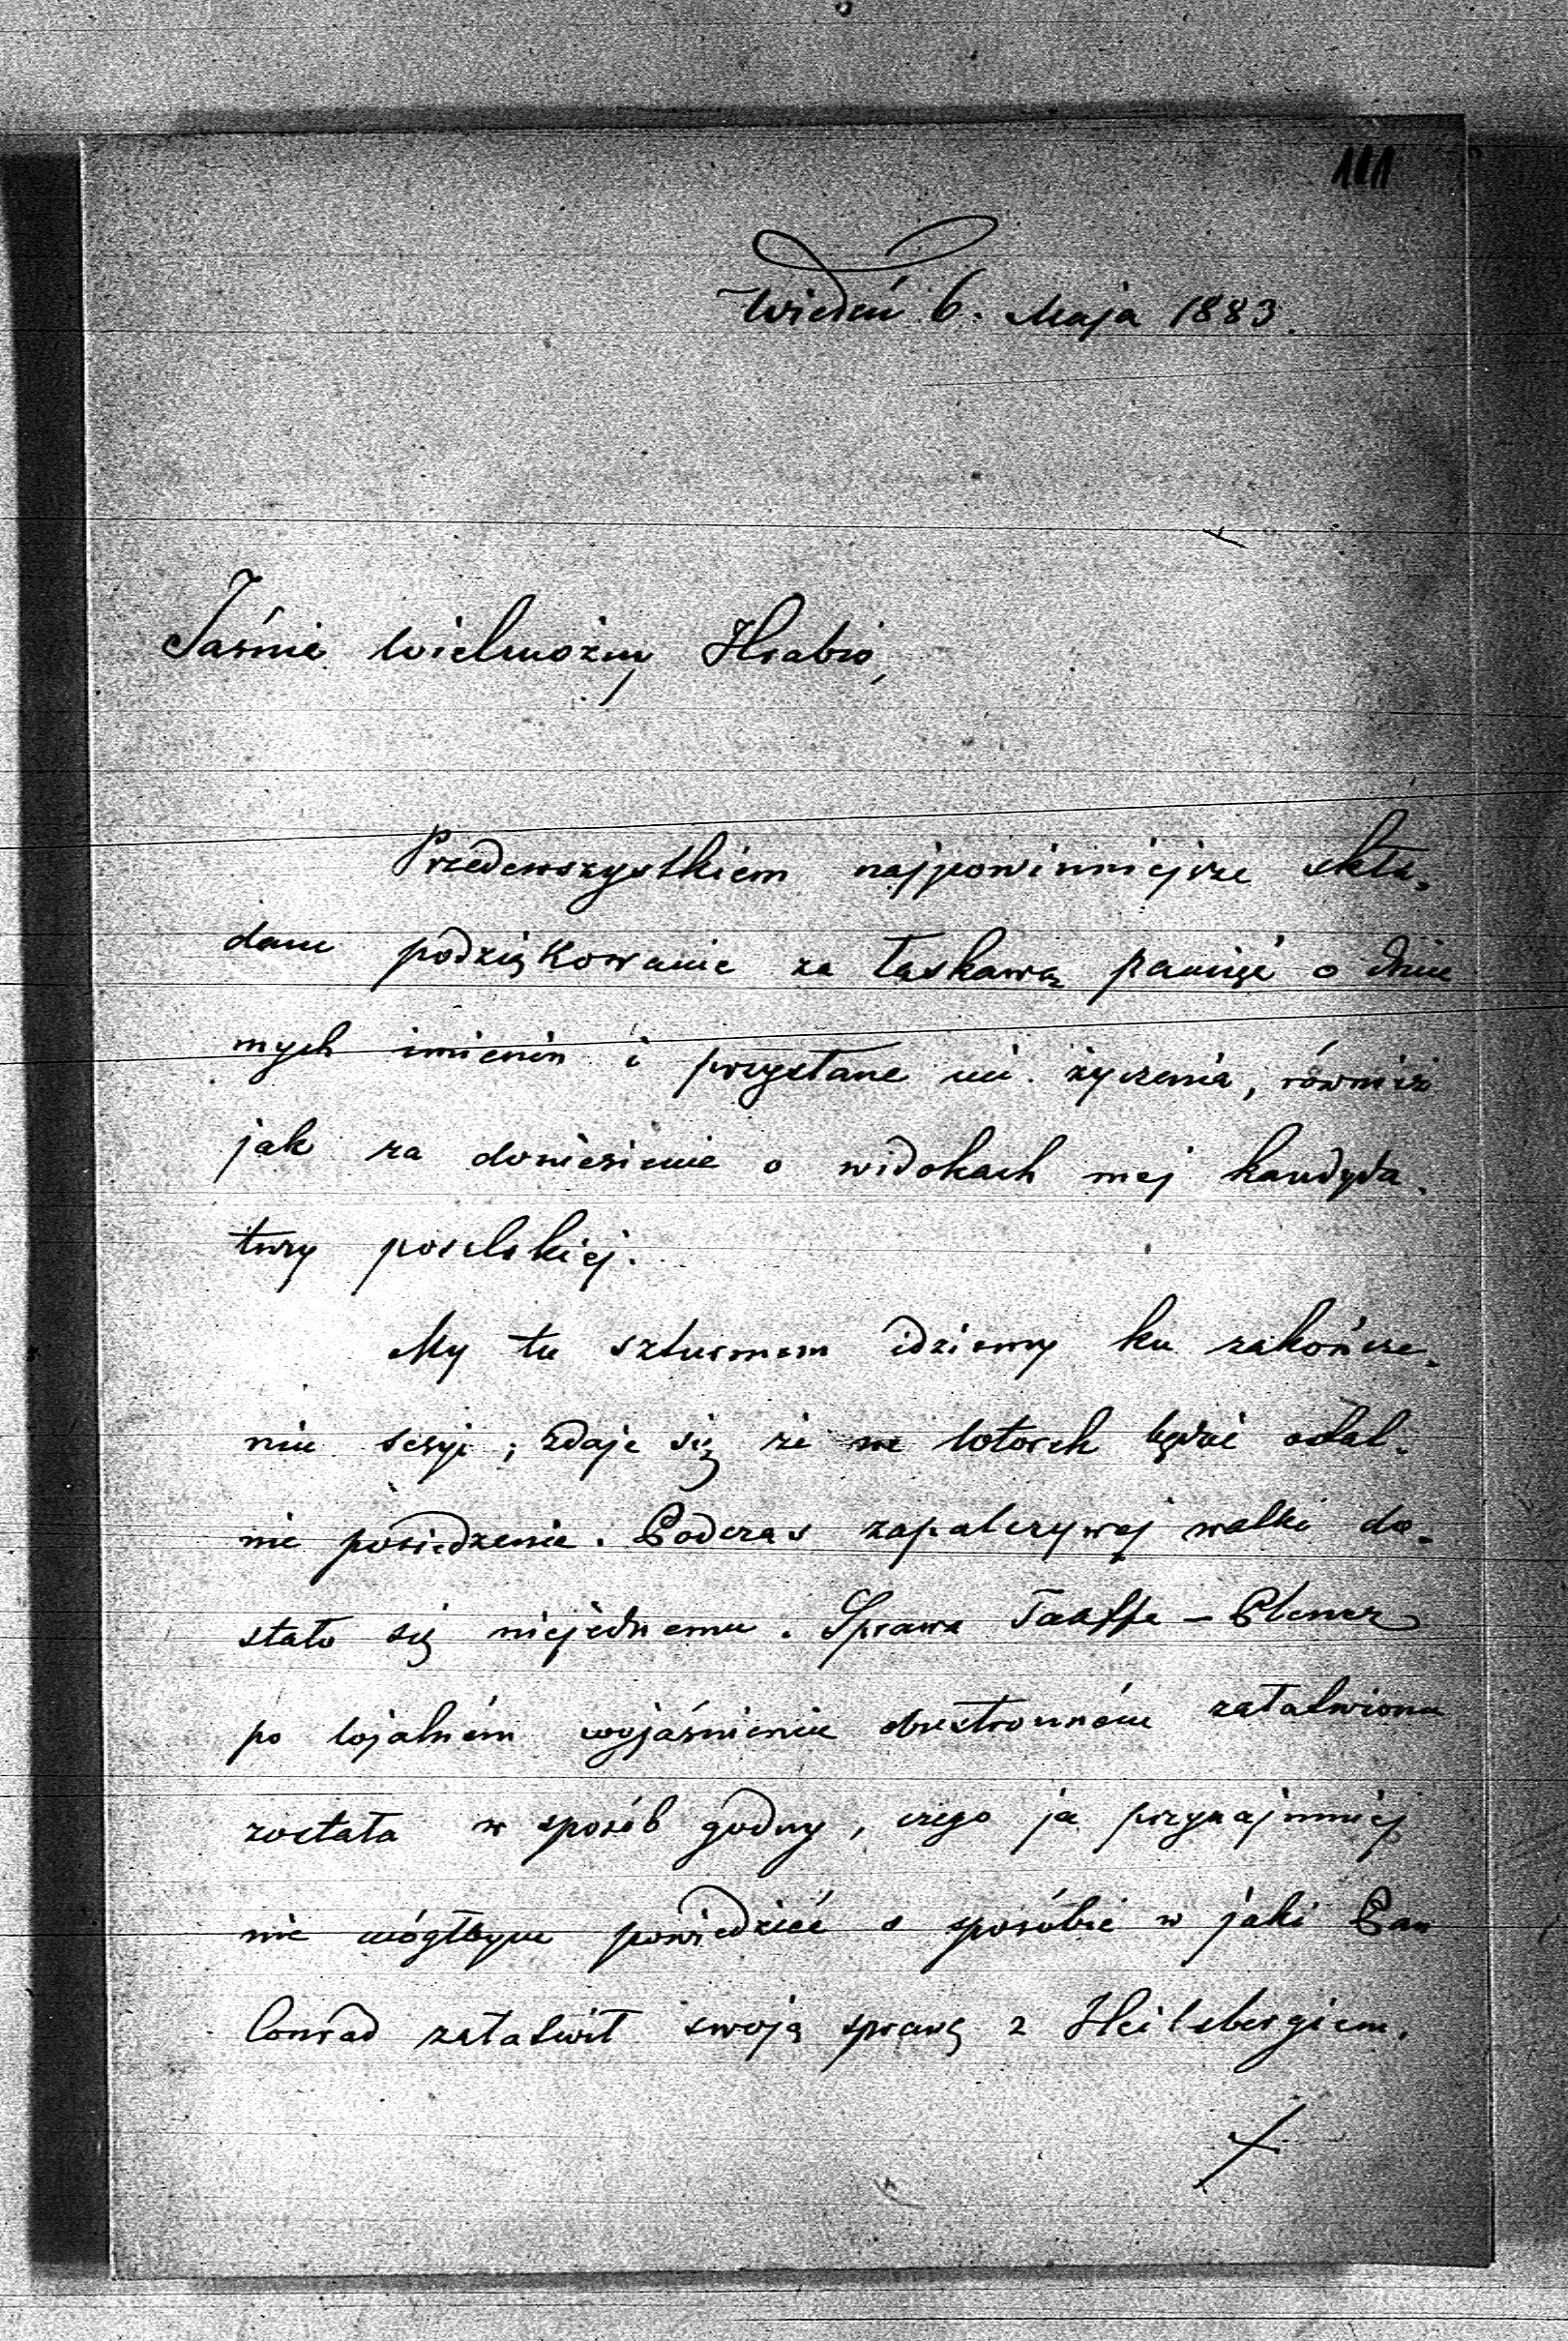 111
Wiedeń 6. Maja 1883.
Jaśnie Wielmożny Hrabio,
Przedewszystkiem najpowinniejsze skła-
dam podziękowanie za łaskawą pamięć o dniu
mych imienin i przysłane mi życzenia, również
jak za doniesienie o widokach mej kandyda-
tury poselskiej.
My tu szturmem idziemy ku zakończe-
niu sesyi; zdaje się że we wtorek będzie ostat-
nie posiedzenie. Podczas zapalczywej walki do-
stało się niejednemu. Sprawa Taaffe - Plener
po lojalném wyjaśnieniu obustronném załatwiona
została w sposób godny, czego ja przynajmniej
nie mógłbym powiedzieć o sposóbie w jaki Pan
Conrad załatwił swoją sprawę z Heilsbergiem.